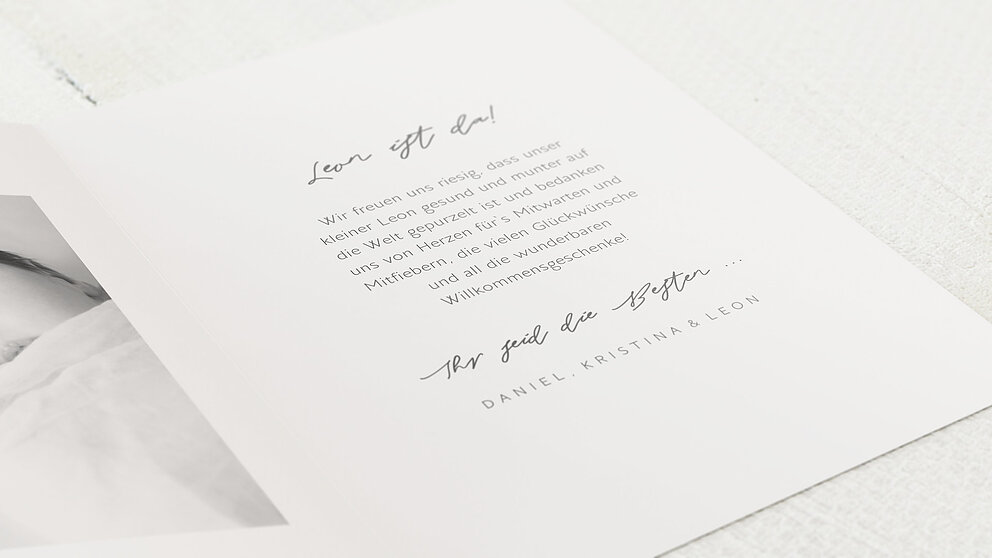 Leon ist da!
Wir freuen uns riesig, dass unser
kleiner Leon gesund und munter auf
die Welt gepurzelt ist und bedanken
uns von Herzen für's Mitwarten und
Mitfiebern, die vielen Glückwünsche
und all die wunderbaren
Willkommensgeschenke!
Ihr seid die Besten ...
DANIEL, KRISTINA & LEON